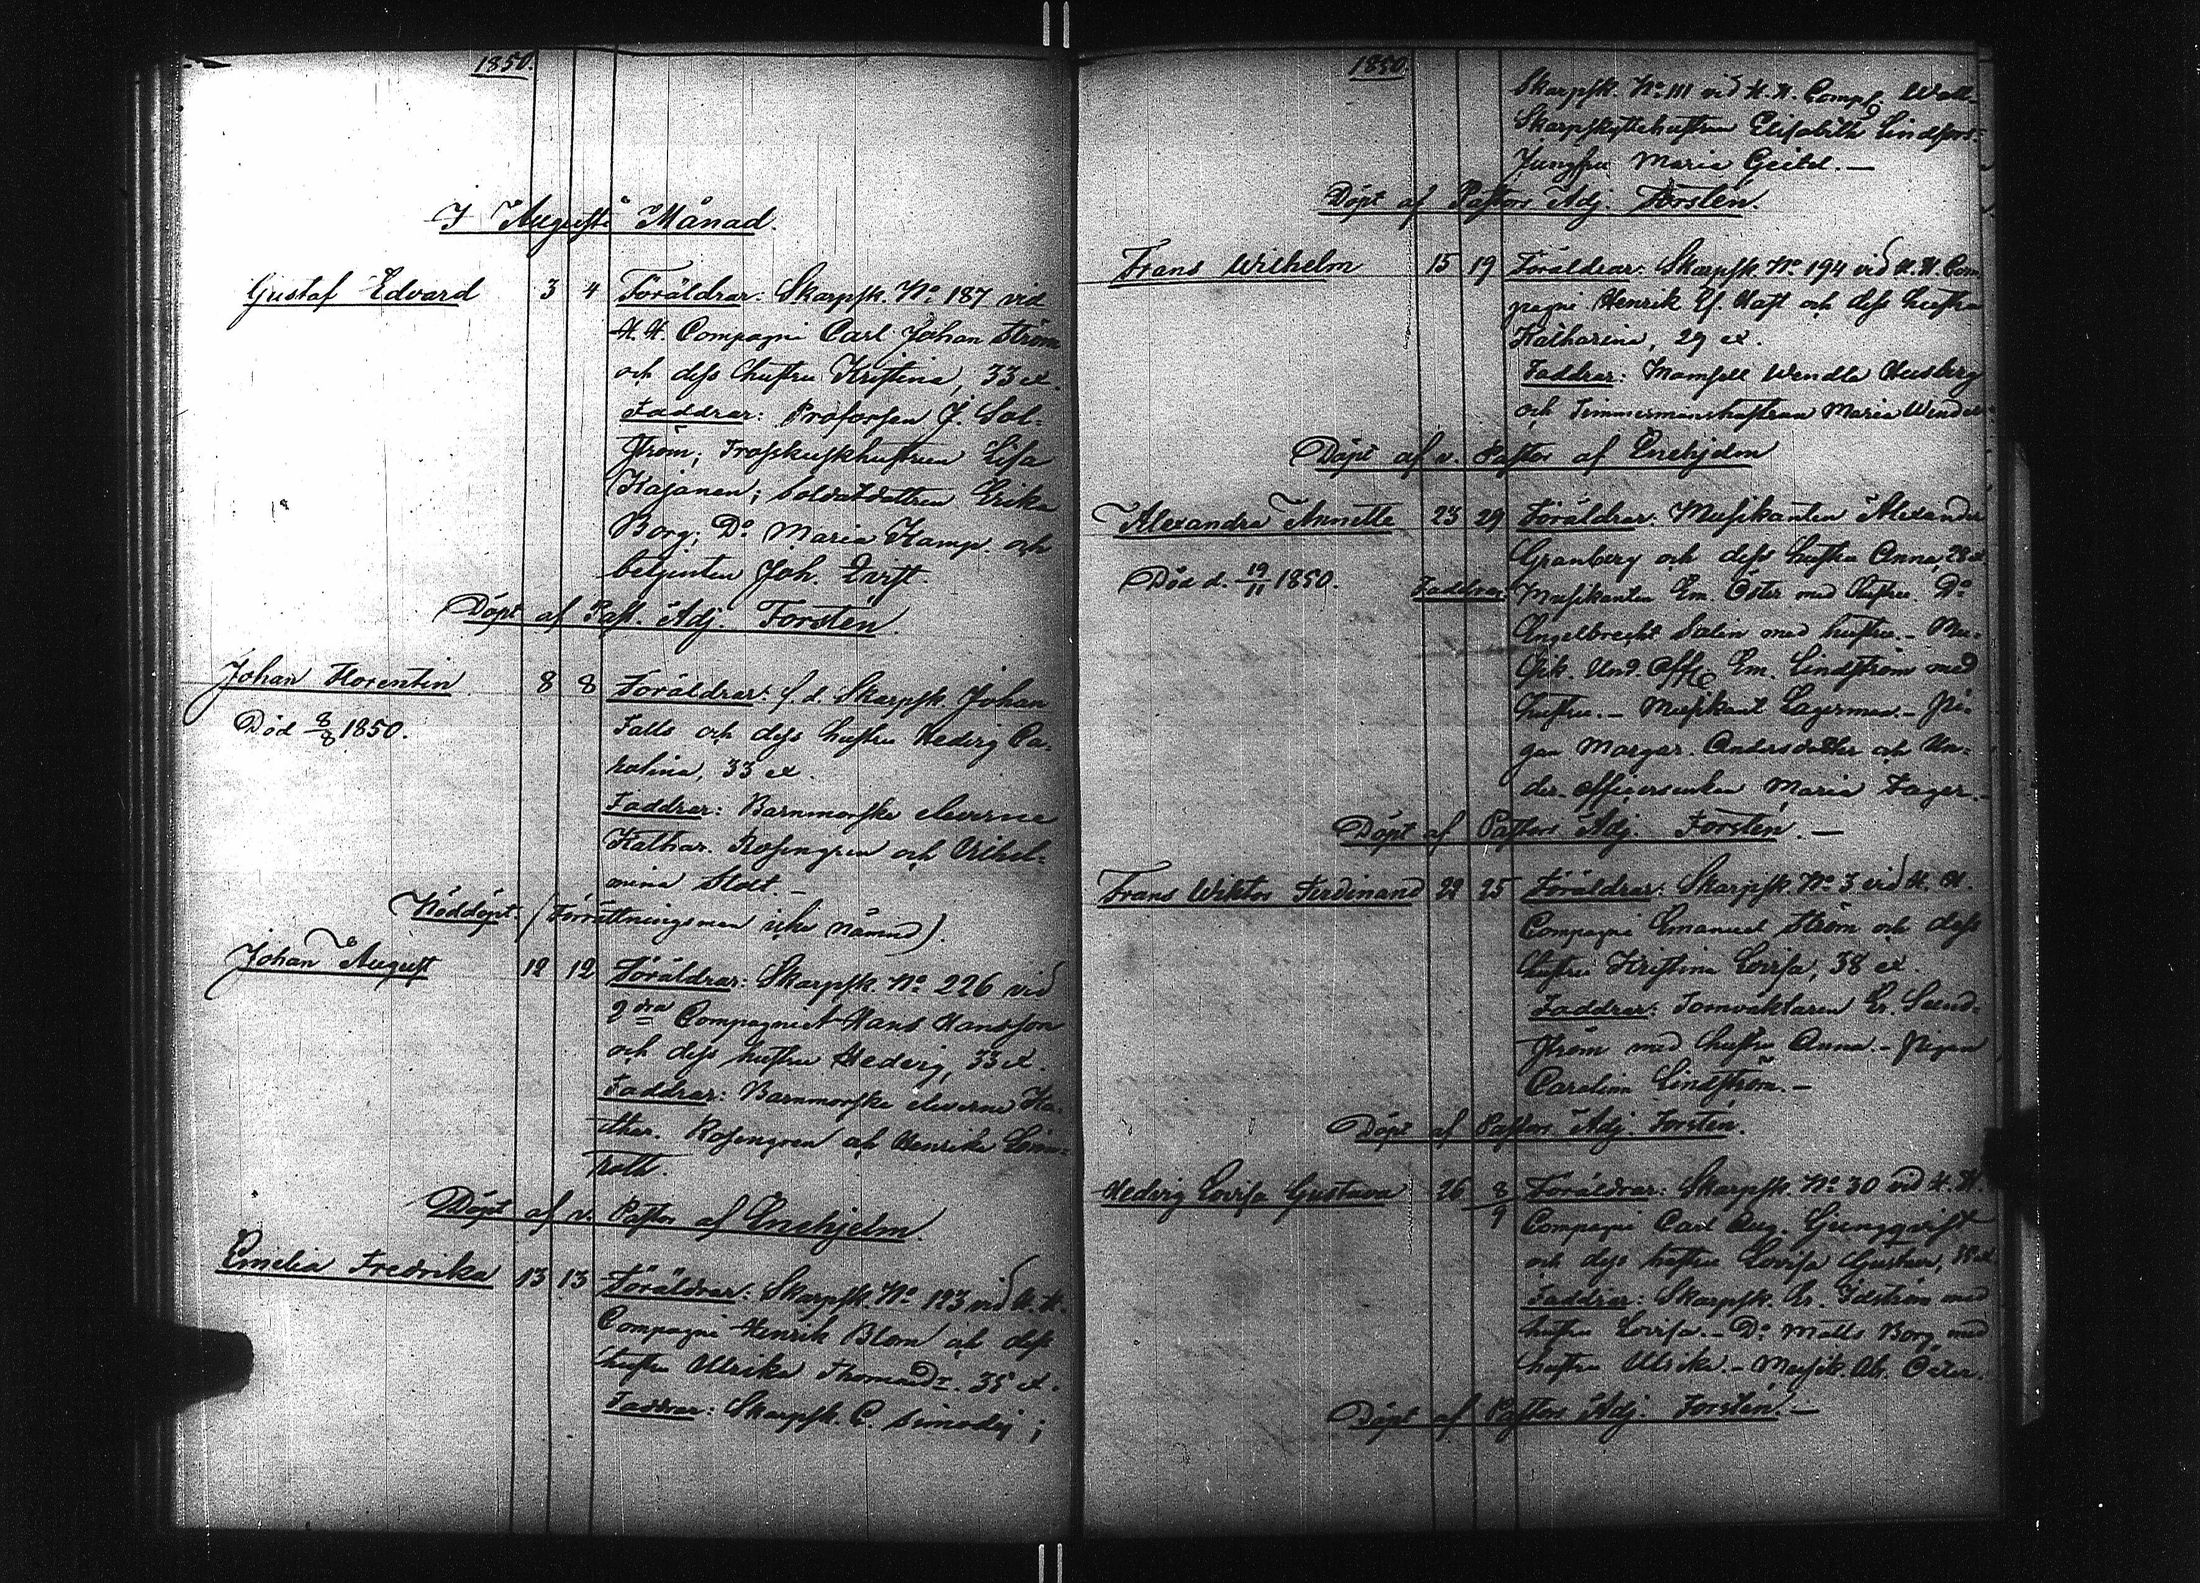 1850.
I Augusti Månad.
Gustaf Edvard 3 4 Föräldrar: Skarpsk. No 187 vid
H. H. Compagni Carl Johan Ström
och dess hustru Kristina, 33 et.
Faddrar: Profossen J. Sol-
ström; Trosskuskhustrun Lisa
Kajanen; Soldatdottren Erika
Borg; Do Maria Kamp. och
betjenten Joh. Qvist.
Döpt af Past. Adj. Forstén.
Johan Florentin 8 8 Föräldrar: f. d. Skarpsk. Johan
Död 8/8 1850. Falls och dess hustru Hedvig Ca-
rolina, 33 et.
Faddrar: Barnmorske eleverne
Kathar. Rosengren och Vilhel-
mina Stolt.
Nöddöpt (Förrättningsman icke nämnd).
Johan August 12 12 Föräldrar: Skarpsk. No 226 vid
2dra Compagniet Hans Hansson
och dess hustru Hedvig, 33 et.
Faddrar: Barnmorske eleverne Ka-
thar. Rosengren och Henrika Lönn-
roth.
Döpt af v. Pastor af Enehjelm.
Emelia Fredrika 13 13 Föräldrar: Skarpsk. No 123 vid H. H.
Compagni Henrik Blom och dess
hustru Ulrika Thomasdr. 35 et.
Faddrar: Skarpsk. C. ;
1850.
Skarpsk. No 111 vid H. H. Comp.
Skarpskyttehustrun Elisabeth Lindfors.
Jungfru Maria
Döpt af Pastors Adj. Forstén.
Frans Wilhelm 15 19 Föräldrar: Skarpsk. No 194 vid H. H. Com-
pagni Henrik och dess hustru
Katharina, 29 et.
Faddrar: Mamsell Wendla Husberg
och Timmermanshustrun Maria
Döpt af v. Pastor af Enehjelm
Alexandra Annette 23 29 Föräldrar: Musikanten Alexander
Granberg och dess hustru Anna, 28 et.
Död d. 19/11 1850. Faddrar: Musikanten Em. Öster med hustru. Do
Engelbrecht Salin med hustru. - Mu-
sik. Und. Offic. Em. Lindström med
hustru. - Musikant Lagerman. - Pi-
gan Margar. Andersdotter och Un-
der-officersenkan Maria Fager. -
Döpt af Pastors Adj. Forstén. -
Frans Wiktor Ferdinand 22 25 Föräldrar: Skarpsk. No 3 vid H. H.
Compagni Emanuel Ström och dess
hustru Kristina Lovisa, 38 et.
Faddrar: Tornväktaren Er. Sund-
ström med hustru Anna. - Pigan
Carolina Lindström. -
Döpt af Pastors Adj. Forstén.
Hedvig Lovisa Gustava 26 8/9 Föräldrar: Skarpsk. No 30 vid H. H.
Compagni Carl Aug. Ljungqvist
och dess hustru Lovisa Gustava, 38 et.
Faddrar: Skarpsk. Er. Idström med
hustru Lovisa. - Do Matts Borg med
hustru Ulrika. - Musik. Al. Öster.
Döpt af Pastors Adj. Forstén. -